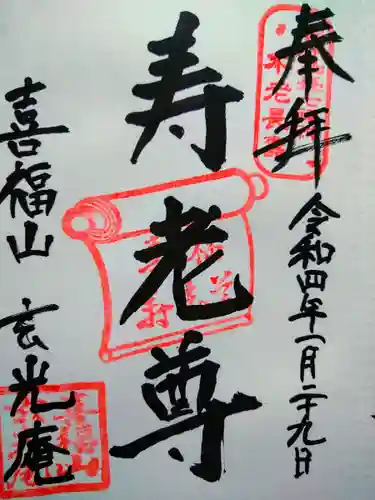 奉拝
令和四年一月二十九日
寿老尊
喜福山 玄光庵